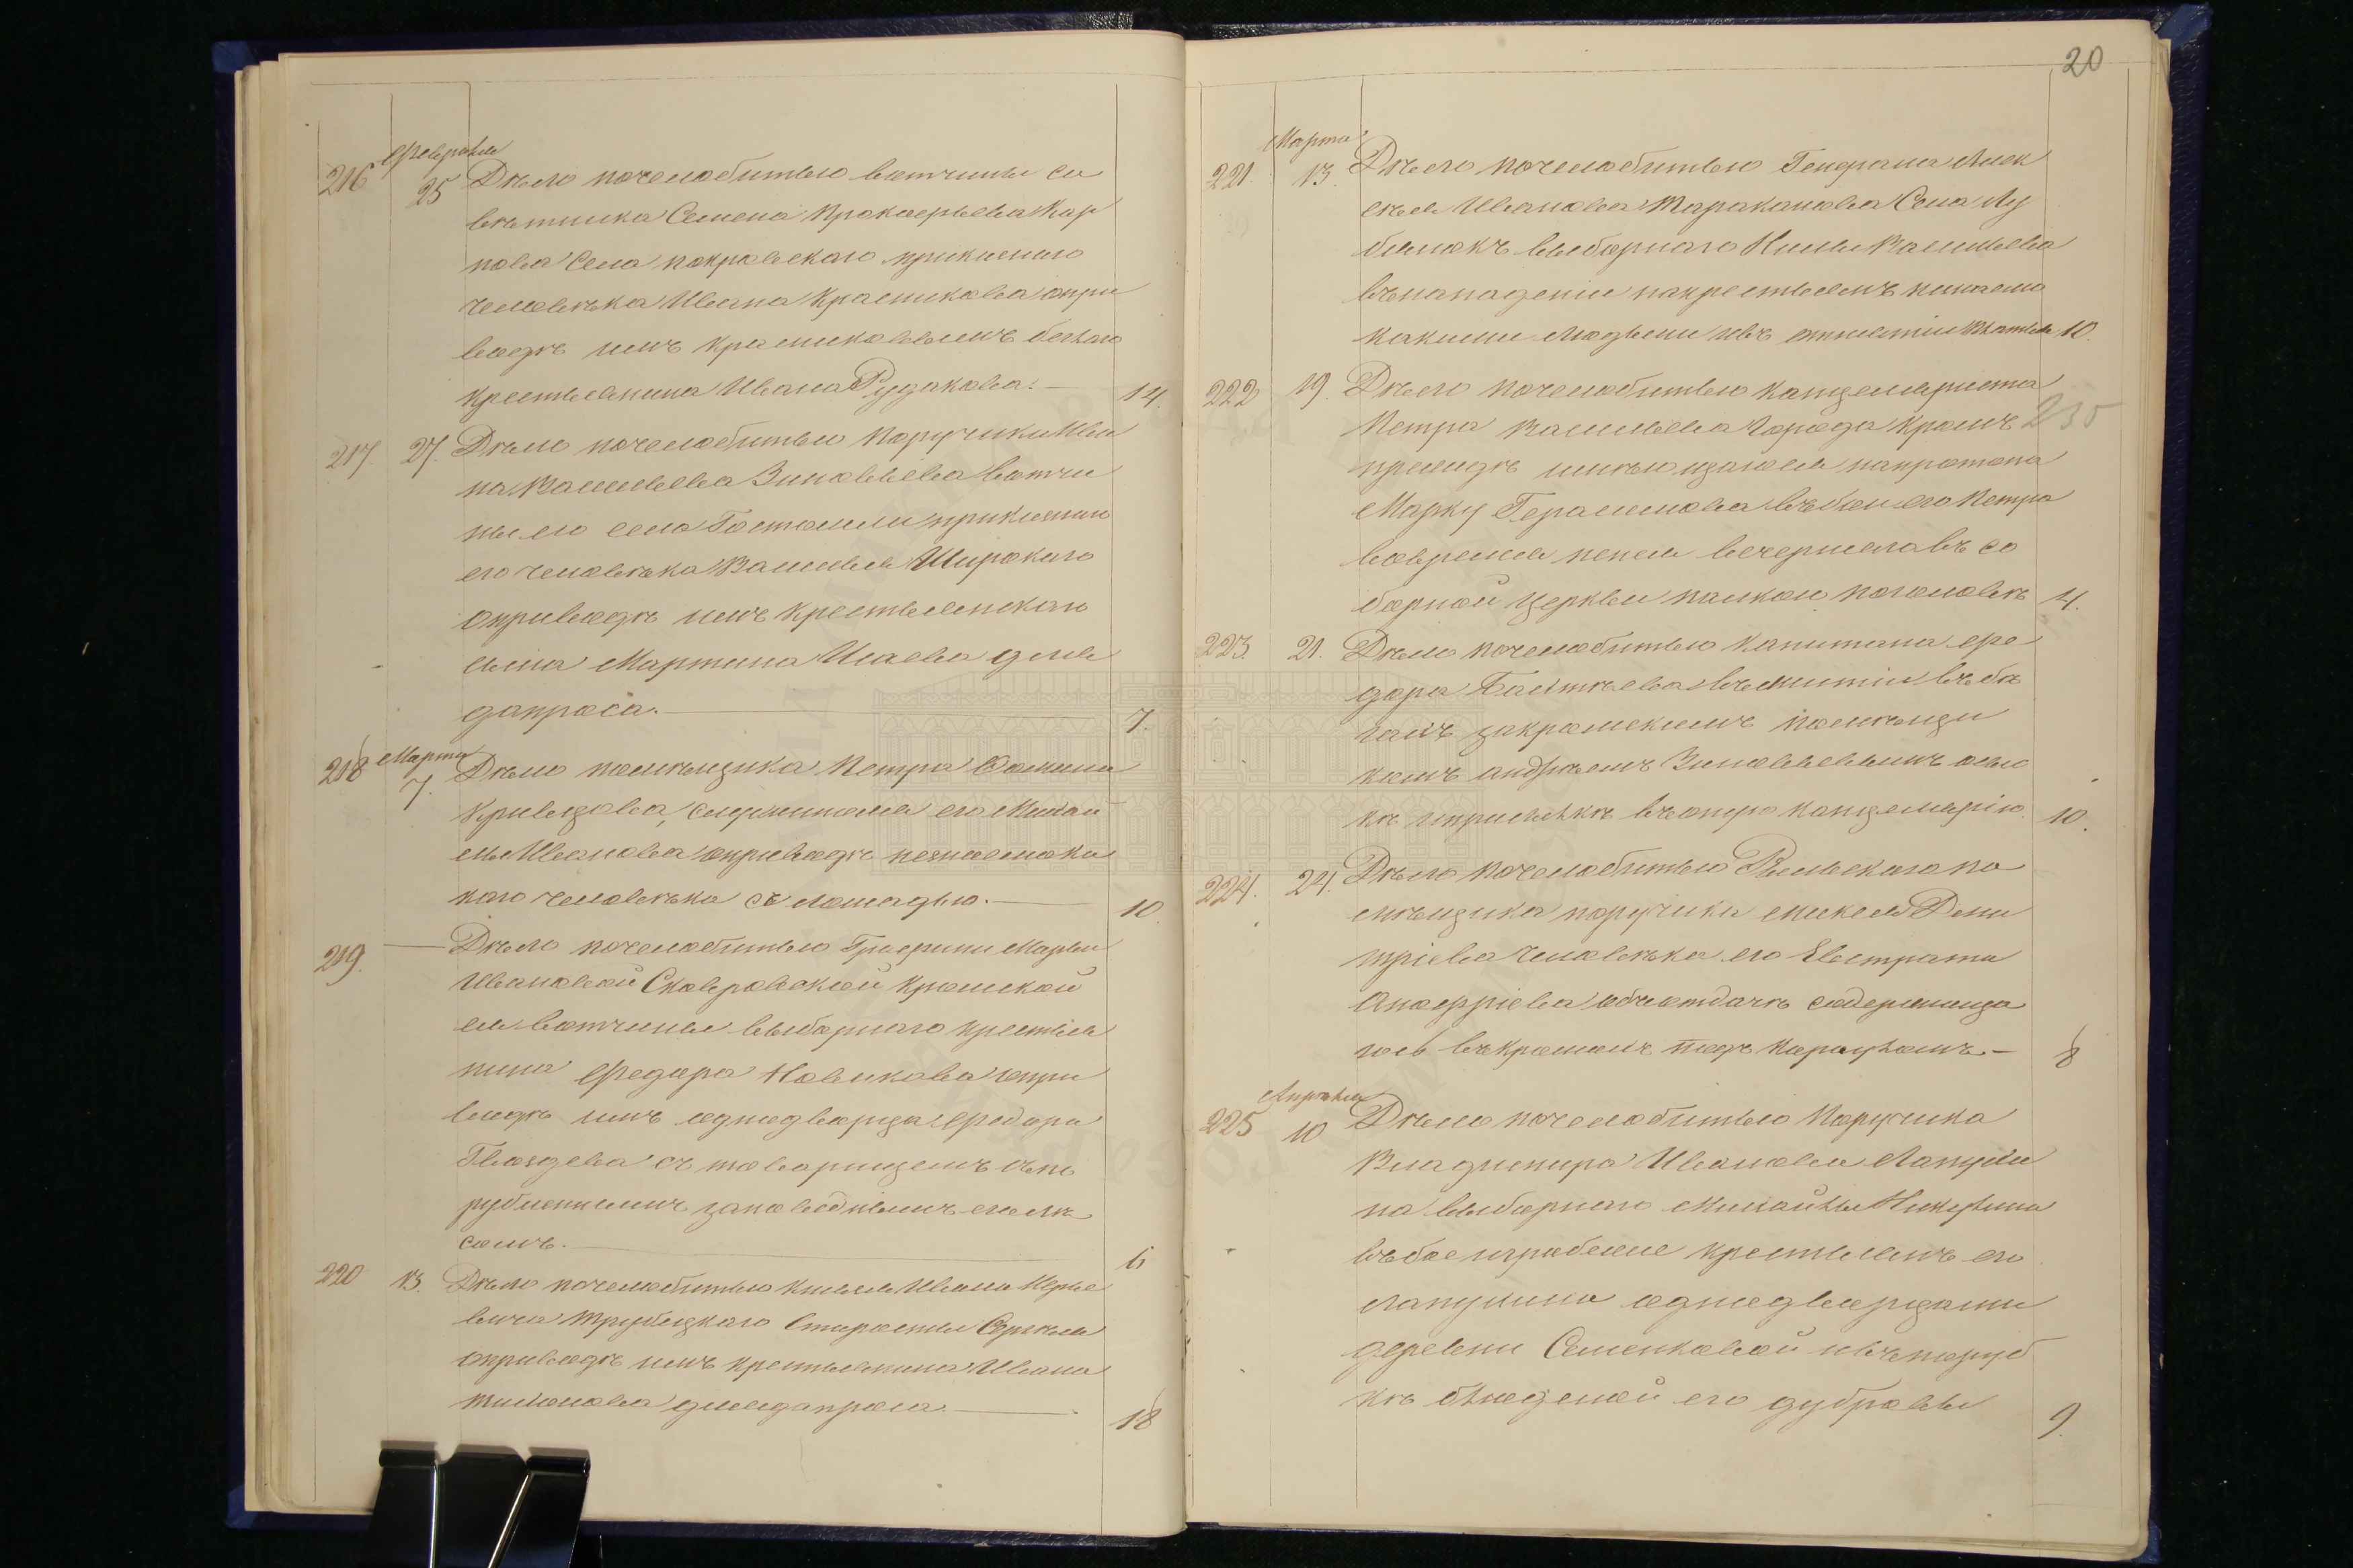 Февраля
216 25 Дѣло почелобитью вотчины со
вѣтника Семена Прокофьева Кар
пова Села покровскаго прикащика
человѣка Ивана Красникова опри
водѣ имъ Красниковымъ беглаго
крестьянина Ивана Рудакова. 14.
217. 27. Дѣло почелобитью Поручика Ива
на Васильева Зиновьева вотчи
ны его села Гостомли прикащика
его человѣка Василья Широкаго
оприводѣ имъ крестьянскаго
сына Мартина Исаева для
допроса. 7.
Марта
218 7. Дѣло помѣщика Петра Фомина
Кривцова, служителя его Михай
лы Иванова оприводѣ незнаемо ка
кого человѣка съ лошадью. 10
219. Дѣло почелобитью Графини Марьи
Ивановой Скавронской Кромской
ея вотчины выборнаго крестья
нина Федора Новикова опри
водѣ имъ однодворца Федора
Гвоздева съ товарищемъ сна
рубленнымъ заповеднымъ ея лѣ
сомъ. 6
220 13. Дѣло почелобитью Князя Ивана Юрье
вича Трубецкаго Старосты Сергея
оприводѣ имъ крестьянина Ивана
Тихонова для допроса. 18
20
Марта
221. 13. Дѣло почелобитью Генерала Алек
сѣя Иванова Тараканова Села Лу
бянокъ выборнаго Нила Васильева
въ нападении на крестьянъ незнаемо
какими людьми ивъ отнятии 10.
222 19. Дѣло почелобитью канцеляриста
Петра Васильева города Кромъ 235
пришедъ напротопопа
Марку Герасимова въ бои его Петра
вовремя пения вечерни въ со
борной церкви палкою поголовѣ 4.
223. 21. Дѣло почелобитью капитана Фе
дора въ житии въ бѣ
гахъ закромскимъ помѣщи
комъ андрѣемъ Зиновьевымъ
въ оную канцелярию. 10.
224. 24. Дѣло почелобитью Рыльскаго по
мѣщика поручика Дми
триева человѣка его Евстрата
объ отдачѣ содержаща
гось въ кромахъ подъ карауломъ. 8
Апрѣля
225 10 Дѣло почелобитью Поручика
Владимира Иванова Лапухи
на выборнаго Михайлы Никулина
въ бое играбеже крестьянъ его
лапухина однодворцами
деревни Семенковой ивъ поруб
кѣ его дубровы 9.